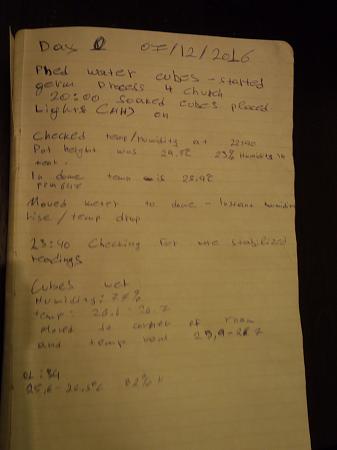 Day 0 07/12/2016
Phed water cubes - started
germ process 4 Church
20:00 Soaked cubes placed
Lights (HH) on
Checked temp/humidity at 22:40
Pot height was 29.5°C 23% Humidity in
tent.
In dome temp is 28.9°C
Moved meter to dome - Instant humidity
rise / temp drop
23:40 Checking for more stabilized
readings
Cubes wet
Humidity: 77%
temp: 26,1 - 26.7
moved to corner of room
and temp went 25,9-26.7
01:34
25,8 - 26,3°C 82% H